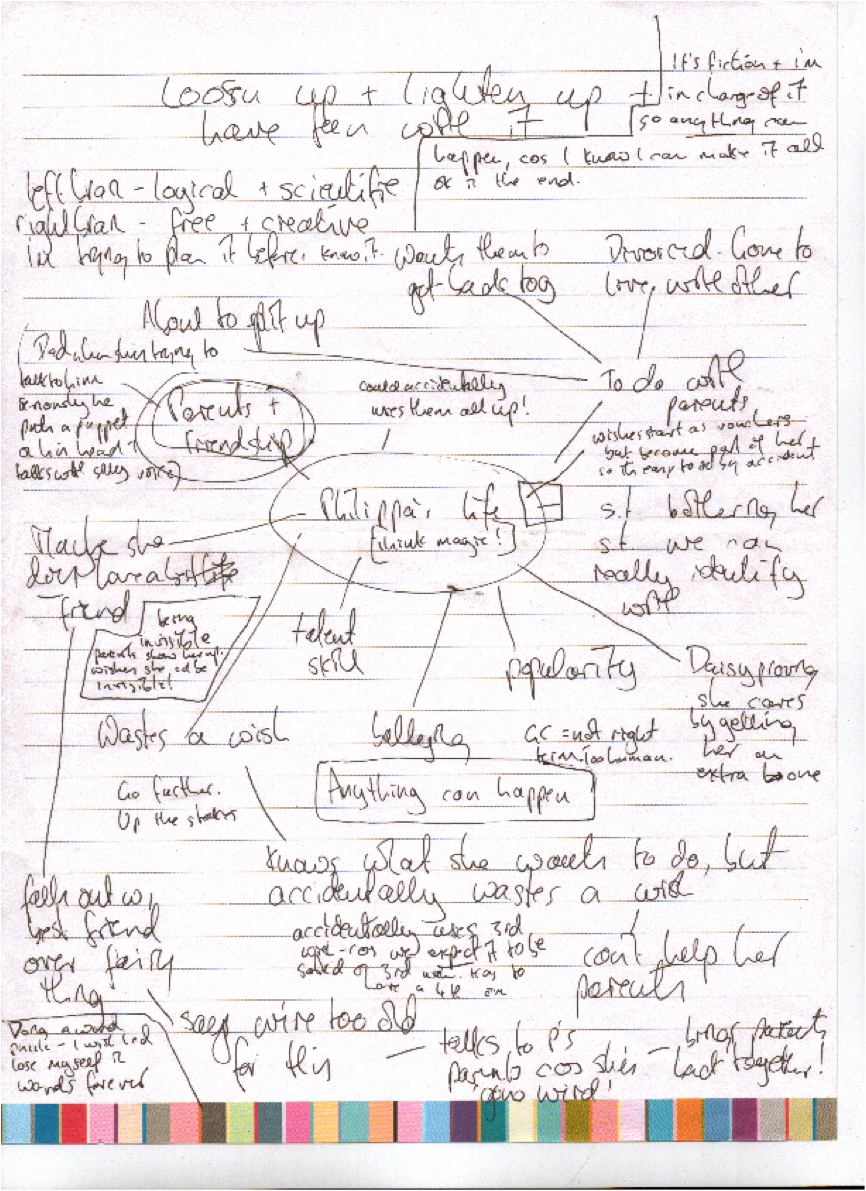 Loosen up + lighten up +
have fun with it
It's fiction + i'm
in charge of it
so anything can
happen, cos I know I can make it all
ok in the end.
left bran - logical + scientific
right bran - free + creative
im trying to plan it before i know it.
wants them to
get back tog
Divorced. Come to
live with other
About to split up
Dad when she's trying to
talk to him
seriously he
puts a puppet
on his head +
talks with silly voice)
Parents +
Friendship
could accidentally
uses them all up!
To do with
parents
wishes start as vouchers
but become part of her +
so it's easy to do by accident
Philippa's life
think magic!
s.t. bothering her
s.t. we can
really identify
with
Maybe she
does have a best
friend
being
invisible
parents show her up.
wishes she cd be
invisible!
talent
skill
popularity
Daisy proving
she cares
by getting
her an
extra one
Wastes a wish
bullying
GC = not right
term. Too human.
Go further.
Up the stakes
Anything can happen
Knows what she wants to do, but
accidentally wastes a wish
falls out w,
best friend
over fairy
thing
accidentally uses 3rd
wish - cos we expect it to be
solved by 3rd wish. Has to
have a 4th one
can't help her
parents
Doing a word
I wish I cd
lose myself in
words forever
says we're too old
for this
talks to P's
parents cos she's
going weird!
brings parents
back together!